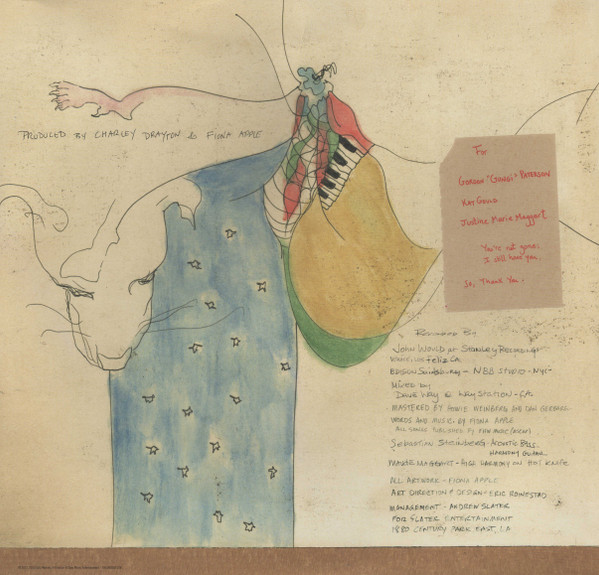 PRODUCED BY CHARLEY DRAYTON & FIONA APPLE
For
GORDON "GONGI" PATERSON
KAY GOULD
Justine Marie Maggart
You're not gone.
I still have you.
So, Thank You.
RECORDED BY
JOHN WOULD AT STANLEY RECORDING
FELIZ CA.
NBB STUDIO - NYC
MIXED BY
DAVE WAY @ WAY STATION - CA
MASTERED BY HOWIE WEINBERG AND DAN GERBARG
WORDS AND MUSIC BY FIONA APPLE
ALL SONGS PUBLISHED BY FHW MUSIC (ASCAP)
SEBASTIAN STEINBERG - ACOUSTIC BASS.
MAUDE MAGGART - GIRL HARMONY ON HOT KNIFE
ALL ARTWORK - FIONA APPLE
ART DIRECTION & DESIGN - ERIC ROINESTAD
MANAGEMENT - ANDREW SLATER
FOR SLATER ENTERTAINMENT
1880 CENTURY PARK EAST, LA